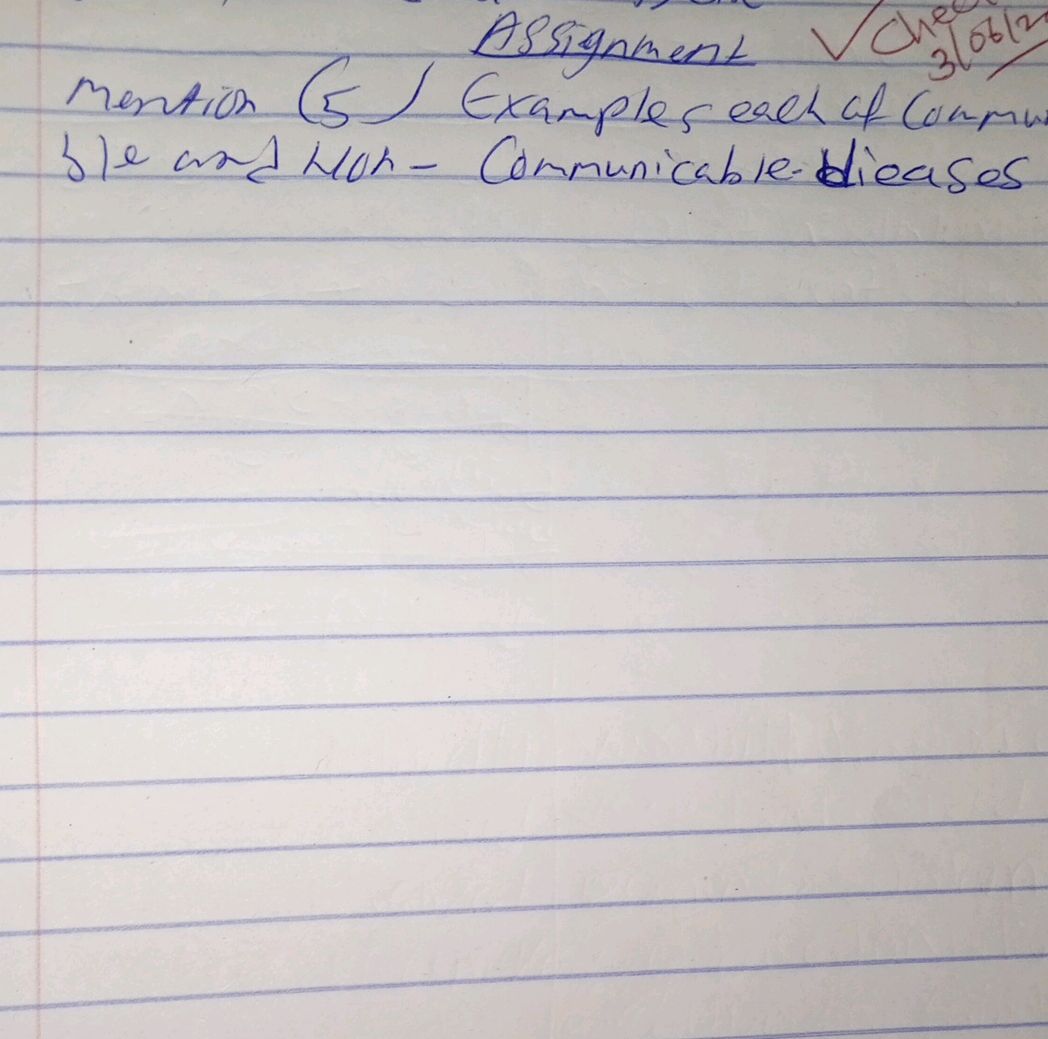 Assignment
✓ Chec
3/06/2
Mention (5) Examples each of Commu
ble and Non- Communicable dieases